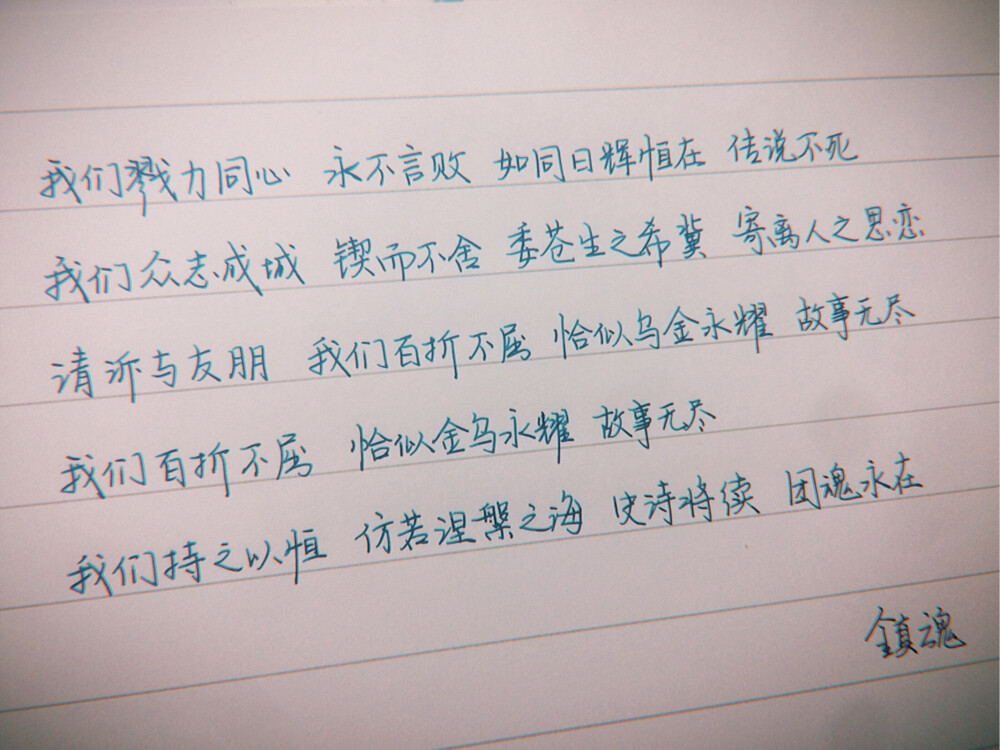 我们戮力同心 永不言败 如同日辉恒在 传说不死
我们众志成城 锲而不舍 委苍生之希冀 寄离人之思恋
请诉与友朋 我们百折不屈 恰似乌金永耀 故事无尽
我们百折不屈 恰似金乌永耀 故事无尽
我们持之以恒 仿若涅槃之海 史诗将续 团魂永在
鎮魂